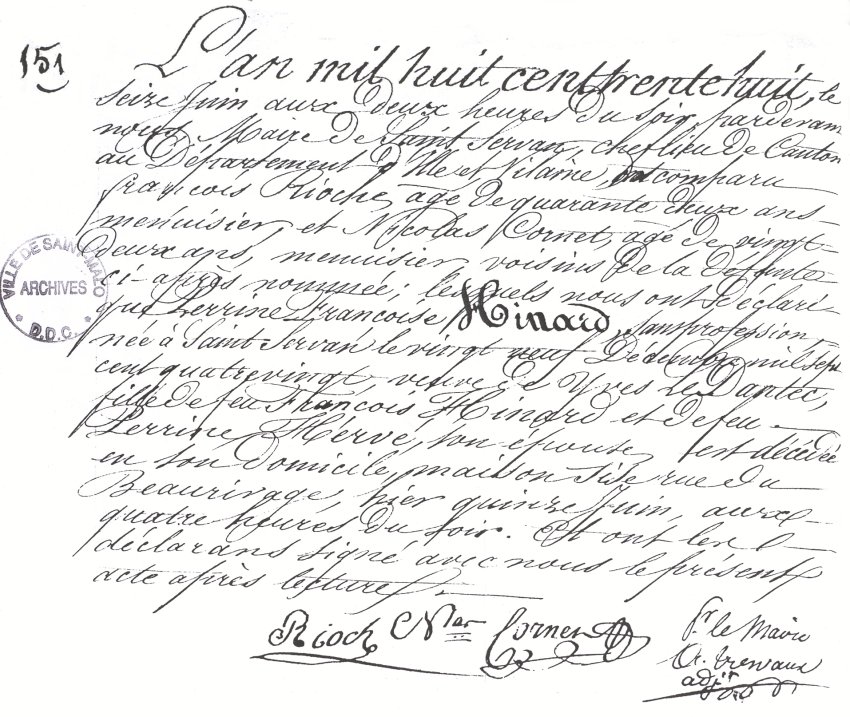 151
L'an mil huit cent trente huit, le
seize Juin aux deux heures du soir, pardevant
nous Maire de Saint Servan, chef lieu de Canton
au Département d'Ille et Vilaine, ont comparu
françois Rioche, agé de quarante deux ans
menuisier, et Nicolas Cornet, agé de vingt
deux ans, menuisier, voisins de la defunte
ci-après nommée; lesquels nous ont déclaré
que Perrine Francoise Hinard, sans profession,
née à Saint Servan le vingt neuf Décembre mil sept
cent quatre vingt, veuve de Yves Le Dantec,
fille de feu François Hinard et de feu
Perrine Hervé, son épouse, est décédée
en son domicile, maison sise rue du
Beaurivage, hier quinze Juin, aux
quatre heures du soir. Et ont les
déclarans signé avec nous le présent
acte après lecture
VILLE DE SAINT-MALO
ARCHIVES
* D.D.C. *
Rioch Nlas Cornet
Pr. le Maire
adjt